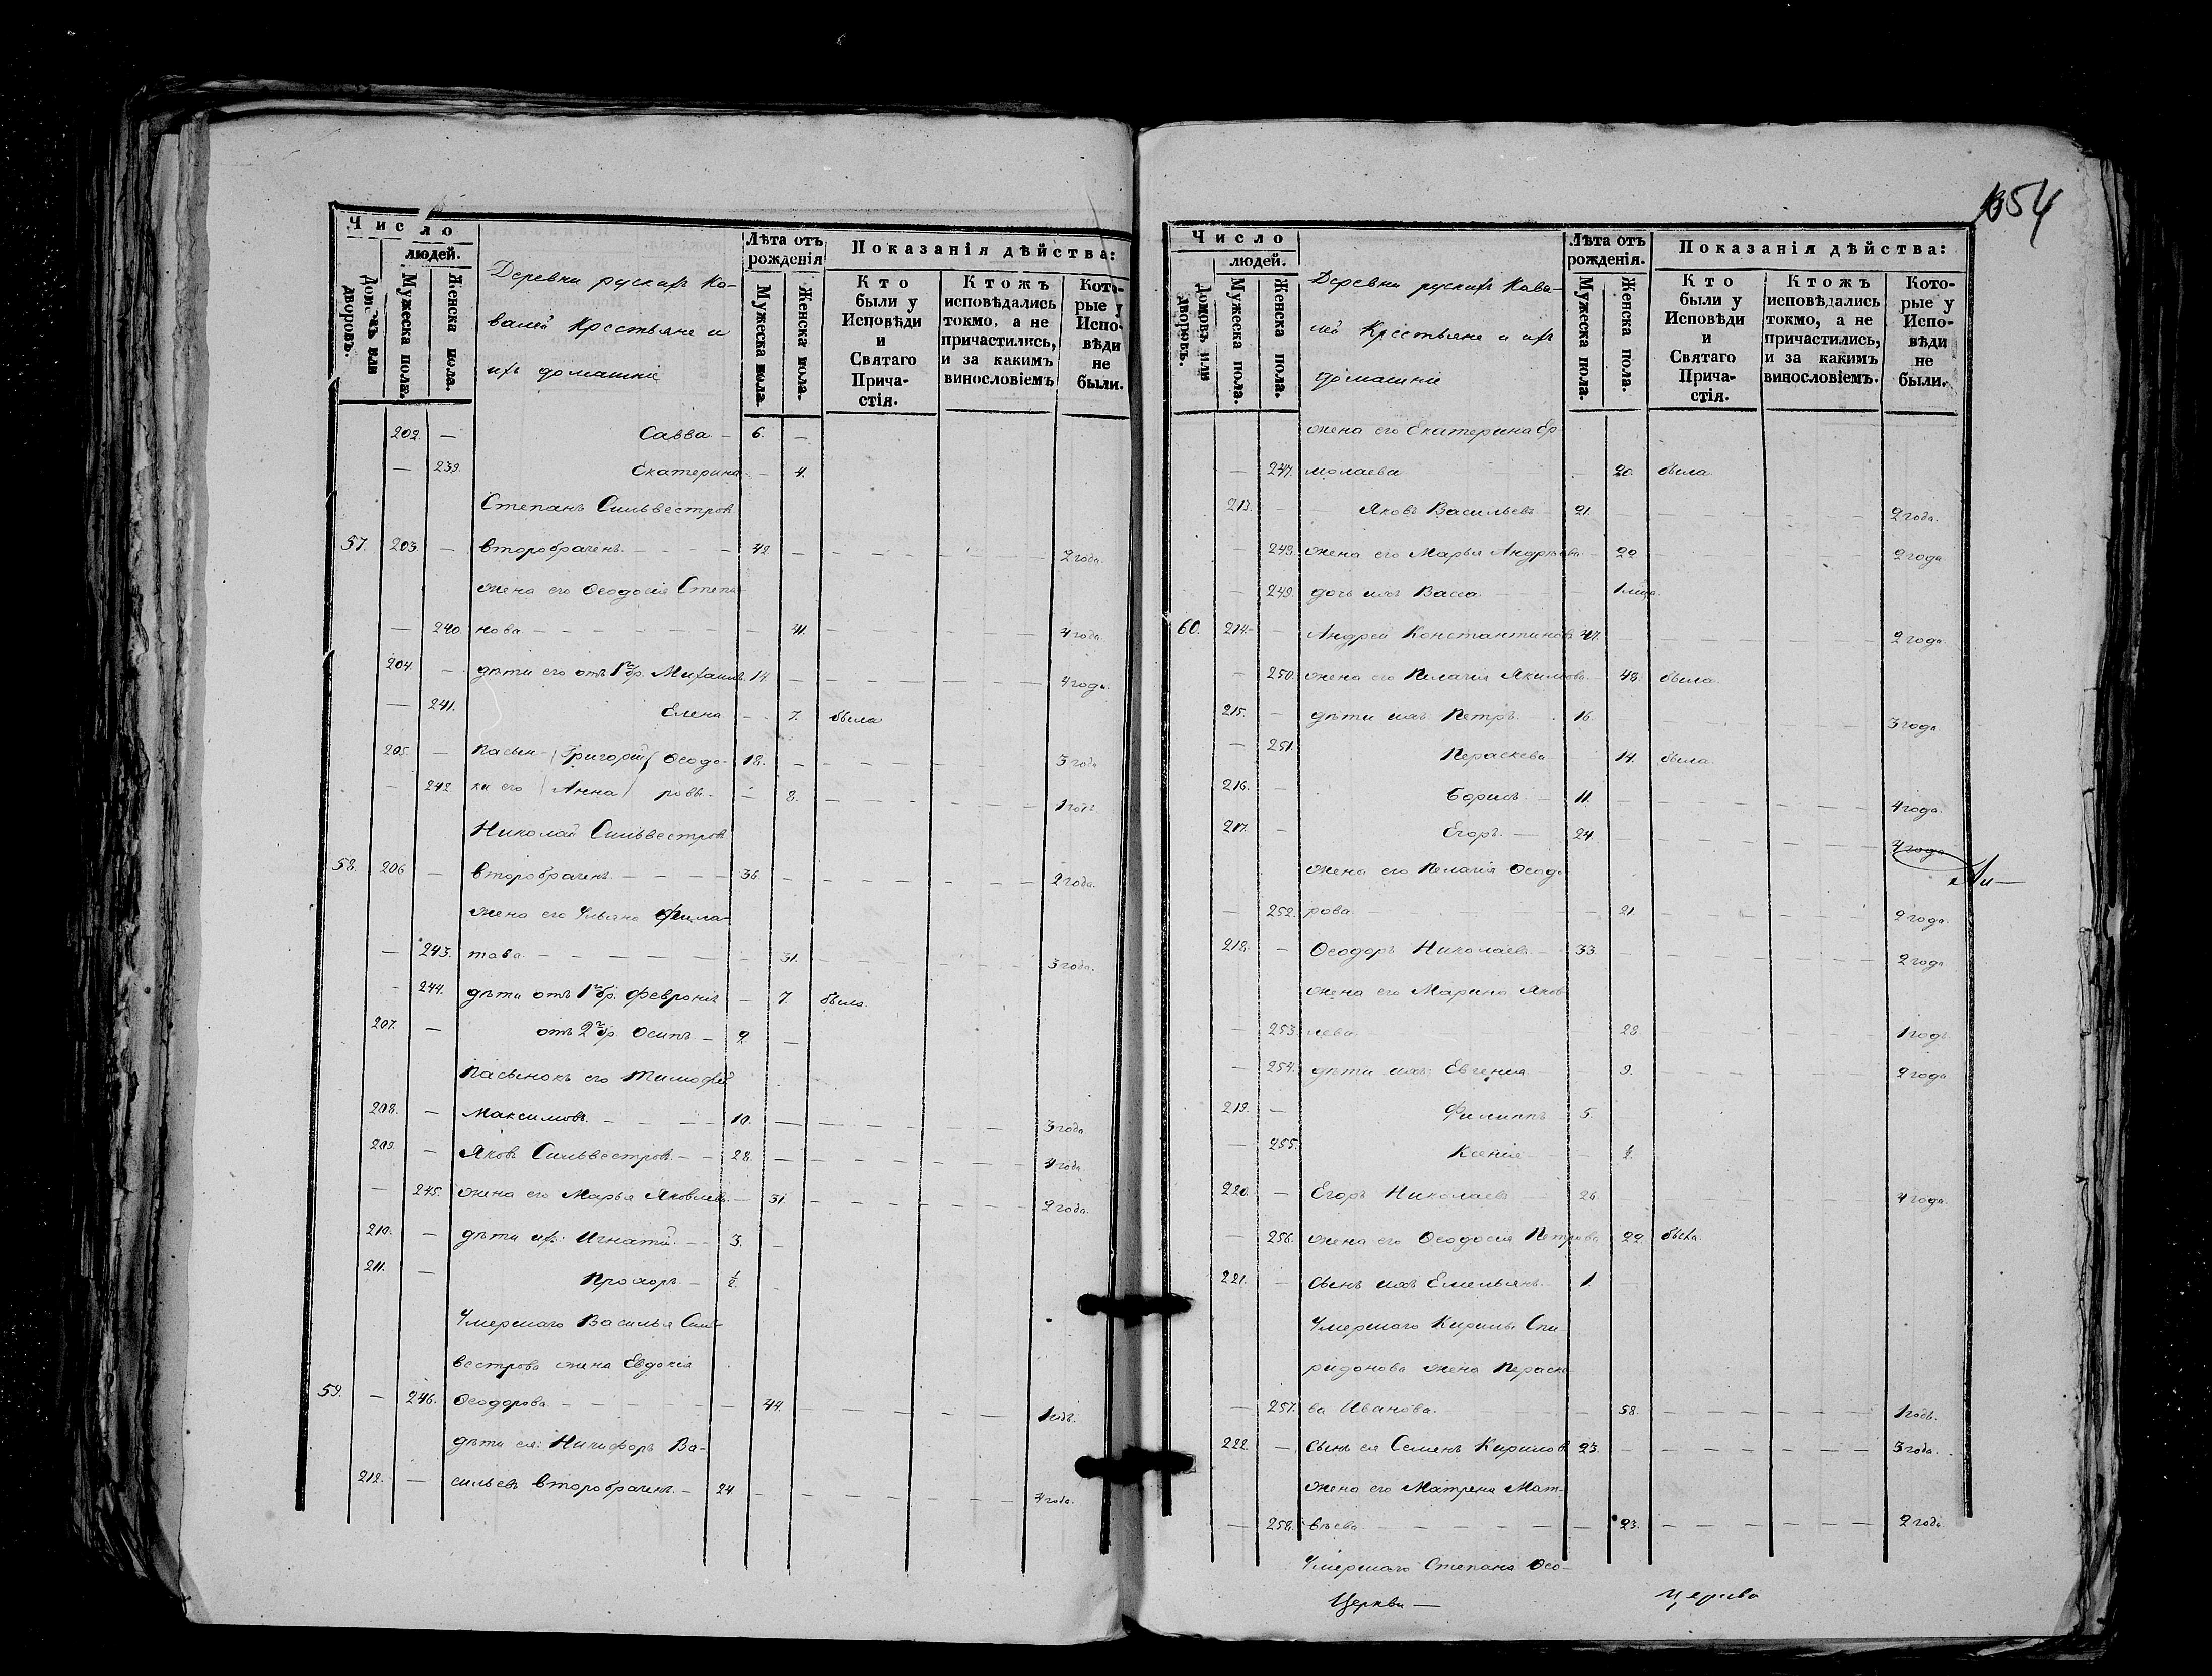 1654
Число
людей.
Домовъ или дворовъ.
Мужеска пола.
Женска пола.
Деревни рускихъ Ко-
валей Крестьяне и
ихъ домашніе
Лѣта отъ рожденія
Мужеска пола.
Женска пола.
Показанія дѣйства:
Кто были у Исповѣди и Святаго Прича- стія.
Ктожъ исповѣдались токмо, а не причастились, и за какимъ винословіемъ
Кото- рые у Испо- вѣди не были.
202. — Савва — 6. —
— 239. Екатерина — 4.
Степанъ Сильвестровъ
57. 203. — второбраченъ. — 42. — 2 года.
жена его Ѳеодосія Степа-
— 240. нова — 41. — 4 года.
204 — дѣти его отъ 1го бр. Михаилъ. 14. — 4 года.
— 241. Елена — 7. была
205. — Пасын- Григорій Ѳеодо- 18. — 3 года
— 242. ки его Анна ровы — 8. — 1 годъ.
Николай Сильвестровъ
58. 206 — второбраченъ. — 36. — 2 года.
жена его Ульяна Фила-
— 243. това. — 31. — 3 года.
— 244. дѣти отъ 1го бр. Февронія — 7. была.
207. — отъ 2го бр. Осипъ — 2 —
Пасынокъ его Тимофей
208. — Максимовъ. — 10. — 3 года
209 — Яковъ Сильвестровъ. — 28. — 4 года.
— 245. жена его Марья Яковлева. — 31 — 2 года.
210. — дѣти ихъ: Игнатій. — 3. —
211. — Прохоръ. — ½. —
Умершаго Василья Силь-
вестрова жена Евдокія
59. — 246. Ѳеодорова. — 44. — 1 годъ.
дѣти ея: Никифоръ Ва-
212. — сильевъ второбраченъ. — 24 — 4 года.
Число
людей.
Домовъ или дворовъ.
Мужеска пола.
Женска пола.
Деревни рускихъ Кова-
лей Крестьяне и ихъ
домашніе
Лѣта отъ рожденія.
Мужеска пола.
Женска пола.
Показанія дѣйства:
Кто были у Исповѣди и Святаго Прича- стія.
Ктожъ исповѣдались токмо, а не причастились, и за какимъ винословіемъ.
Кото- рые у Испо- вѣди не были.
жена его Екатерина Ер-
— 247. молаева — 20. была.
213. — Яковъ Васильевъ — 21. — 2 года.
— 248. жена его Марья Андрѣева — 22 — 2 года
— 249. дочь ихъ Васса. — 1
60. 214. — Андрей Константиновъ 47. — 2 года
— 250. жена его Пелагія Якимова — 48. была.
215. — дѣти ихъ Петръ. 16. — 3 года
— 251. Пераскева — 14. была.
216. — Борисъ — 11. — 4 года.
217. — Егоръ. — 24. — 4 года
жена его Пелагія Ѳеодо-
— 252. рова. — 21 — 2 года.
218. — Ѳеодоръ Николаевъ — 33. — 2 года
жена его Марина Яков-
— 253 лева — 28. — 1 годъ.
— 254. дѣти ихъ: Евгенія — 9. — 2 года
219. — Филиппъ — 5. —
— 255. Ксенія — ½.
220. — Егоръ Николаевъ — 26. — 4 года.
— 256. жена его Ѳеодосія Петрова 22. была.
221. — сынъ ихъ Емельянъ. — 1 —
Умершаго Кирилы Спи-
ридонова жена Параске-
— 257. ва Иванова. — 58. — 1 годъ.
222 — сынъ ея Семенъ Кириловъ 23. — 3 года.
жена его Матрена Мат-
— 258. вѣева. — 23. — 2 года.
Умершаго Степана Ѳео-
Церкви —